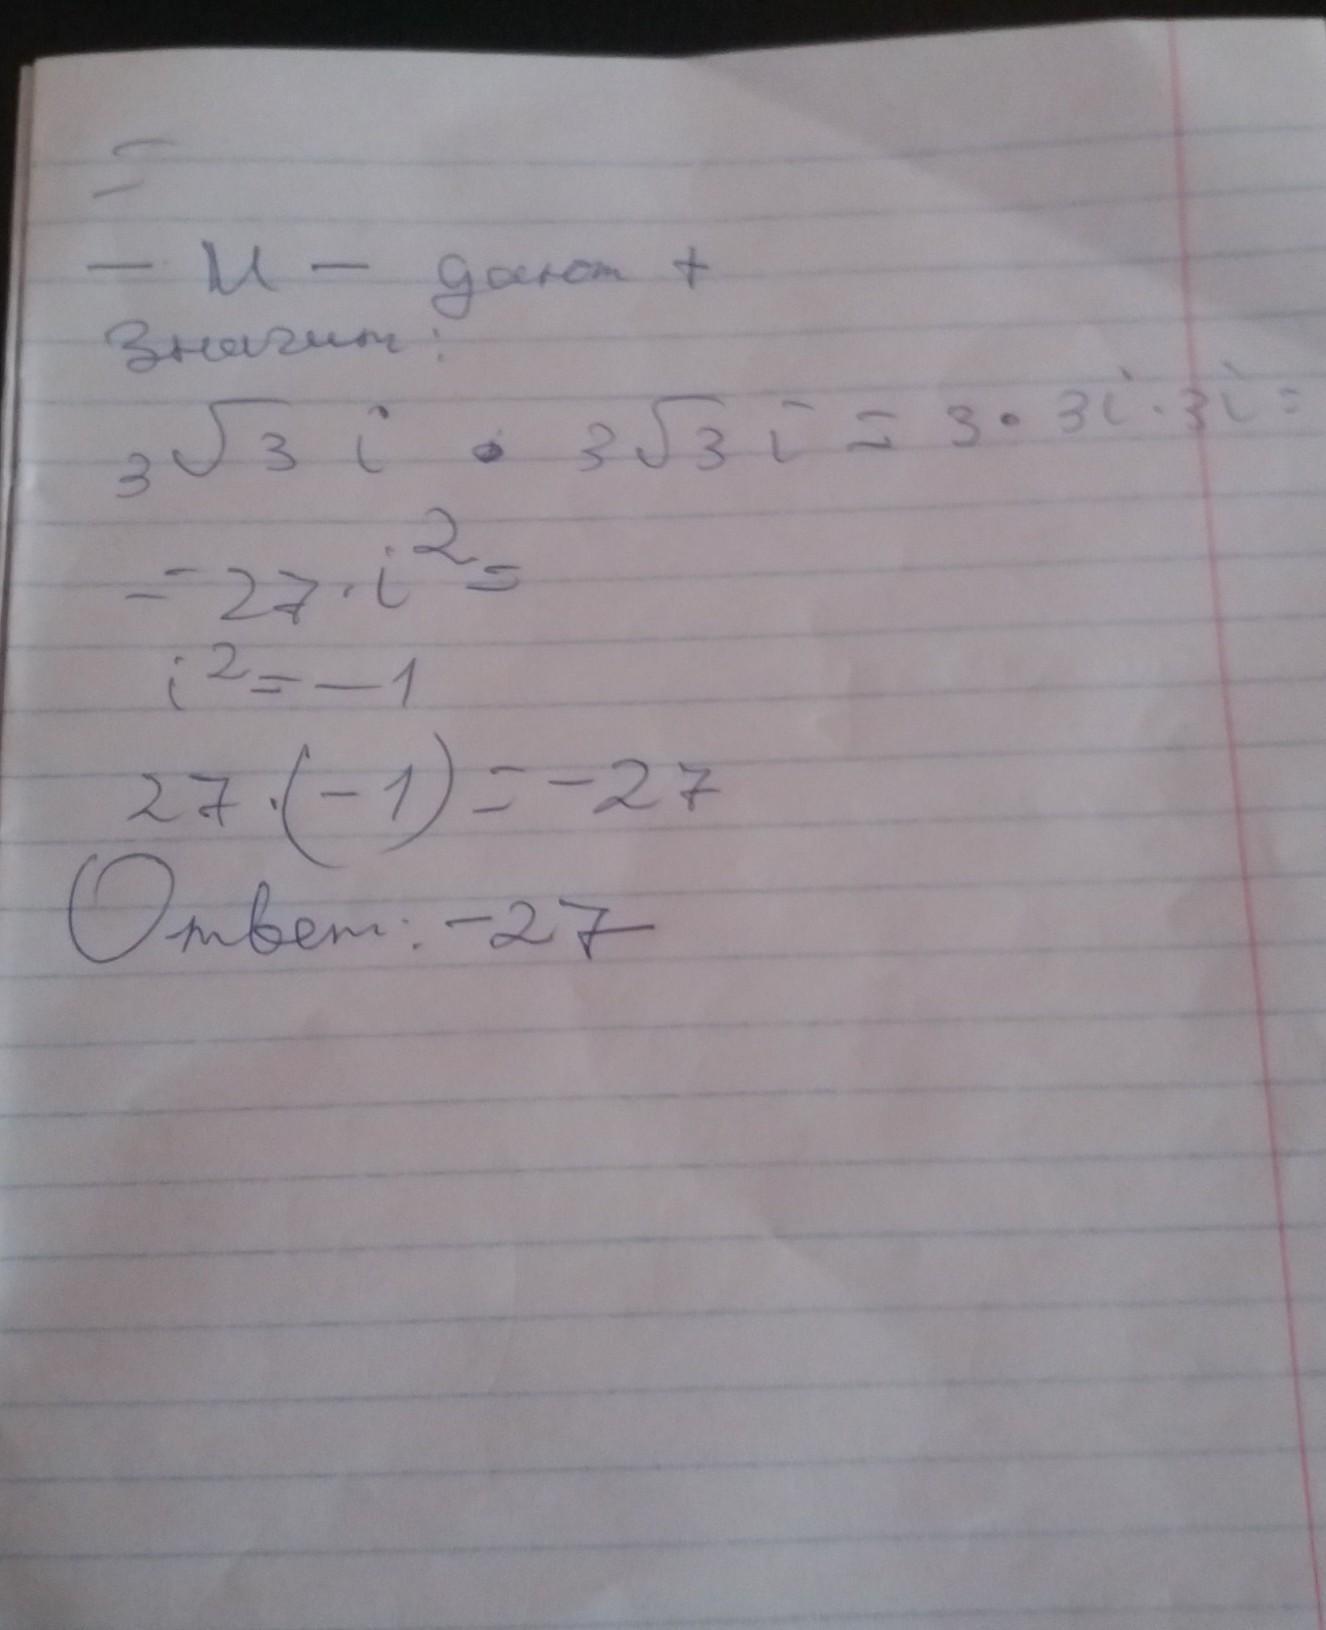 =
— И — дают +
Значит:
3√3 i • 3√3 i = 3 • 3i · 3i =
= 27 · i² =
i² = — 1
27 · (-1) = -27
Ответ: -27